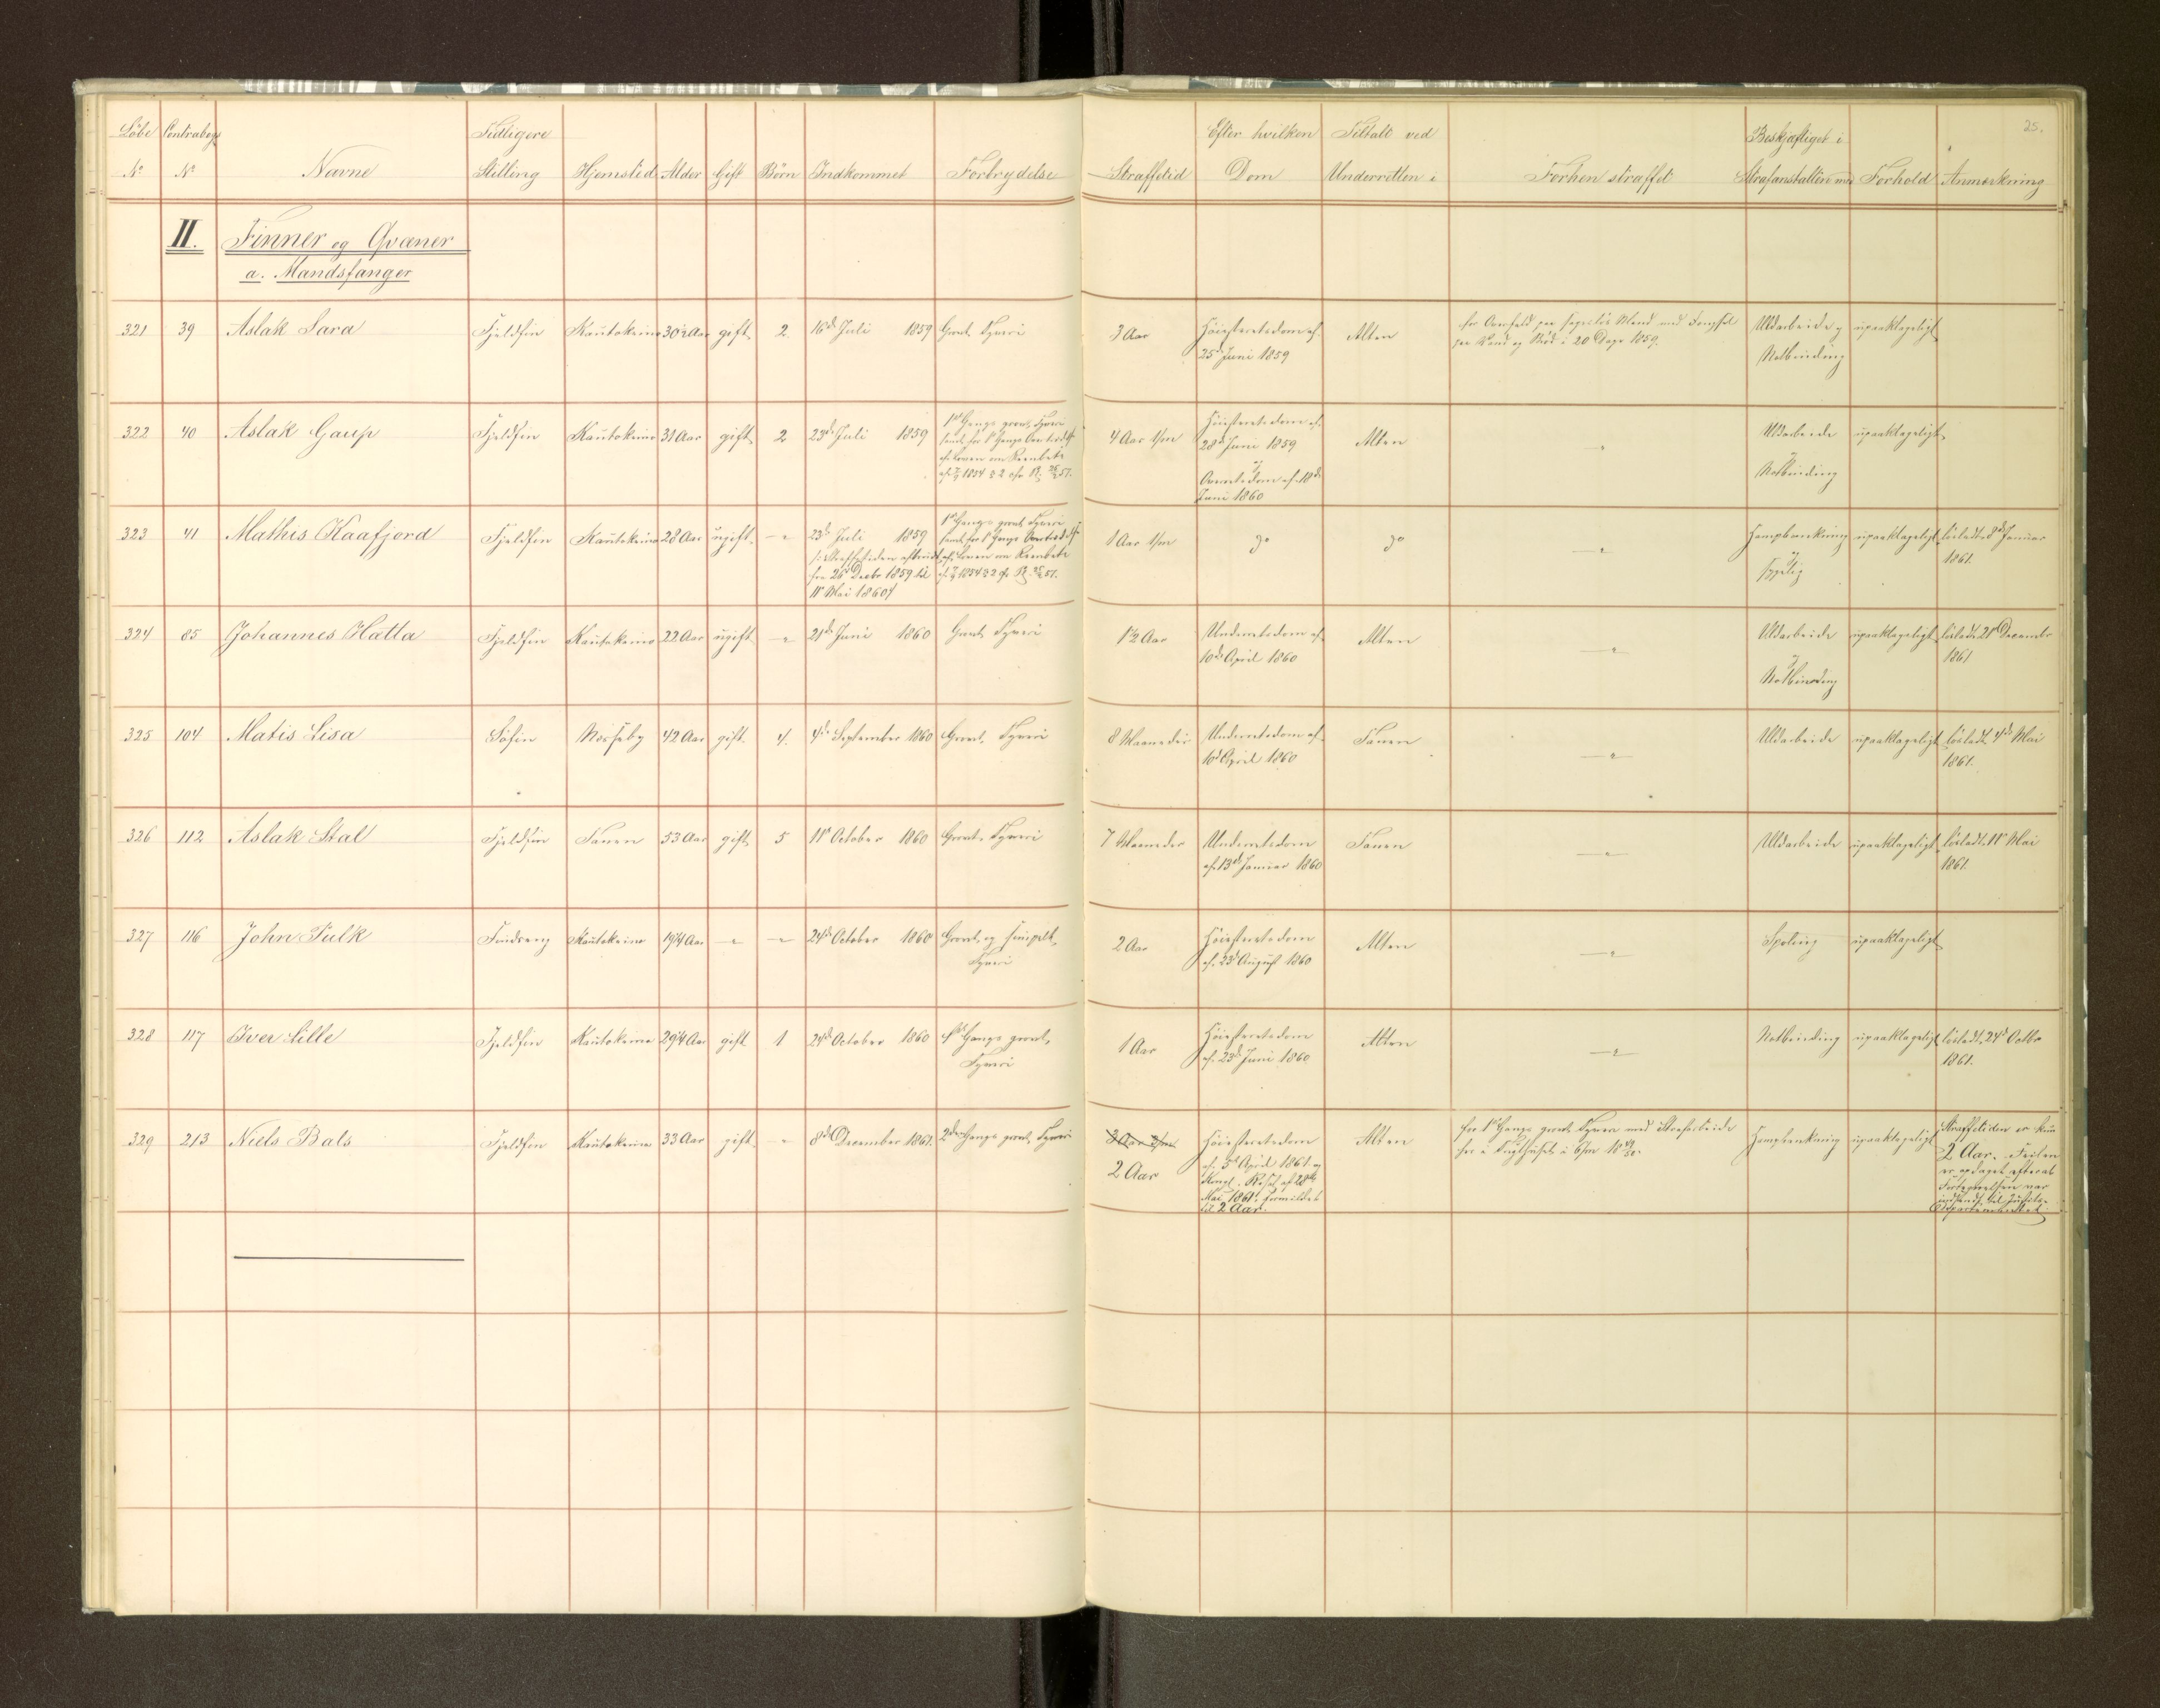 25.
Løbe Nº Contrabogs Nº Navne Tidligere Stilling Hjemsted Alder Gift Børn Indkommet Forbrydelse Straffetid Efter hvilken Dom Tiltalt ved Underretten i Forhen straffet Beskjæftiget i Strafanstalten med Forhold Anmærkning
II. Finner og Qvæner
a. Mandsfanger
321 39 Aslak Sara Fjeldfin Kautokeino 30½ Aar gift 2. 16de Juli 1859 Grovt Tyveri 3 Aar Høiesteretsdom af Alten for Overfald paa sageslös Mand med Fængsel Uldarbeide og upaaklageligt
25de Juni 1859 paa Vand og Brød i 20 Dage 1859. Notbinding
322 40 Aslak Gaup Fjeldfin Kautokeino 31 Aar gift 2 23de Juli 1859 1ste Gangs grovt Tyveri 4 Aar 1/m Høiesteretsdom af Alten " Uldarbeide upaaklageligt
samt for 1ste Gangs 28de Juni 1859 og
af Loven om Reenbete og Notbinding
af 7/9 1854 § 2 Overretsdom af 18de
Juni 1860
323 41 Mathis Kaafjord Fjeldfin Kautokeino 28 Aar ugift - " 23de Juli 1859 1ste Gangs grovt Tyveri 1 Aar 1/m do do " Hamphænkning upaaklageligt løsladt 8de Januar
/: Straffetiden afbrudt samt for 1ste Gangs og 1861.
fra 26de Decbr 1859 til af Loven om Reenbete
11te Mai 1860 :/ af 7/9 1854 § 2
324 85 Johannes Hætta Fjeldfin Kautokeino 22 Aar ugift " 21de Juni 1860 Grovt Tyveri 1½ Aar Underretsdom af Alten " Uldarbeide upaaklageligt løsladt 21de Decembr
10de April 1860 og 1861
Notbinding
325 104 Matis Lisa Søfin Næsseby 42 Aar gift 4. 4de September 1860 Grovt Tyveri 8 Maaneder Underretsdom af Tanen " Uldarbeide upaaklageligt løsladt 4de Mai
10de April 1860 1861.
326 112 Aslak Stal Fjeldfin Tanen 53 Aar gift 5 11te October 1860 Grovt Tyveri 7 Maaneder Underretsdom Tanen " Uldarbeide upaaklageligt løsladt 11te Mai
af 13de Januar 1860 1861.
327 116 John Tulk Kautokeino 19¼ Aar " " 24de October 1860 Grovt og simpelt 2 Aar Høiesteretsdom Alten " Spoling upaaklageligt
Tyveri af 23de August 1860
328 117 Iver Sille Fjeldfin Kautokeino 29¼ Aar gift 1 24de October 1860 1ste Gangs grovt 1 Aar Høiesteretsdom Alten " Notbinding upaaklageligt løsladt 24de Octbr
Tyveri af 23de Juni 1860 1861.
329 213 Niels Bals Fjeldfin Kautokeino 33 Aar gift " 8de December 1861. 2den Gangs grovt Tyveri 3 Aar 3/m Høiesteretsdom Alten for 1ste Gangs grovt Tyveri med Strafarbeide Hamphænkning upaaklageligt Straffetiden er kun
2 Aar af 5te April 1861 og her i Tugthuset i 6/m 18 49/50. 2 Aar. Feilen
Kongl. Resol. af 28de er opdaget efterat
Mai 1861 formildet Fortegnelsen var
til 2 Aar. indsendt til Justits-
Departementet